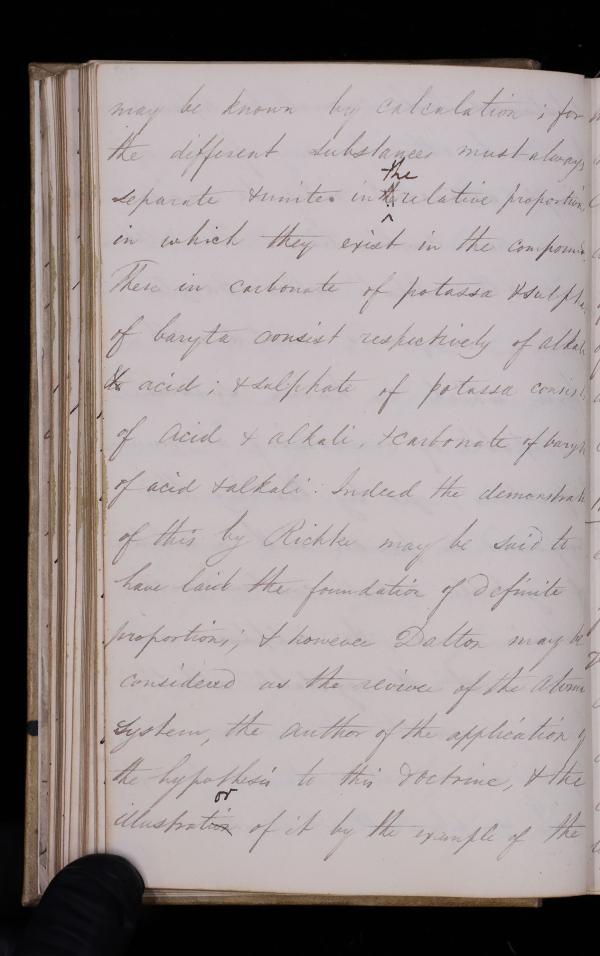 may be known by calculation; for
the different substances must always
the
separate & unite in relative proportion
in which they exist in the compoun
Thus in carbonate of potassa & sulpha
of baryta consist respectively of alkali
& acid; & sulphate of potassa consist
of acid & alkali, & carbonate of baryt
of acid & alkali: Indeed the demonstrat
of this by Richter may be said to
have laid the foundation of definite
proportions; & however Dalton may be
considered as the reviver of the atomi
system, the author of the application of
the hypothesis to this doctrine, & the
or
illustration of it by the example of the